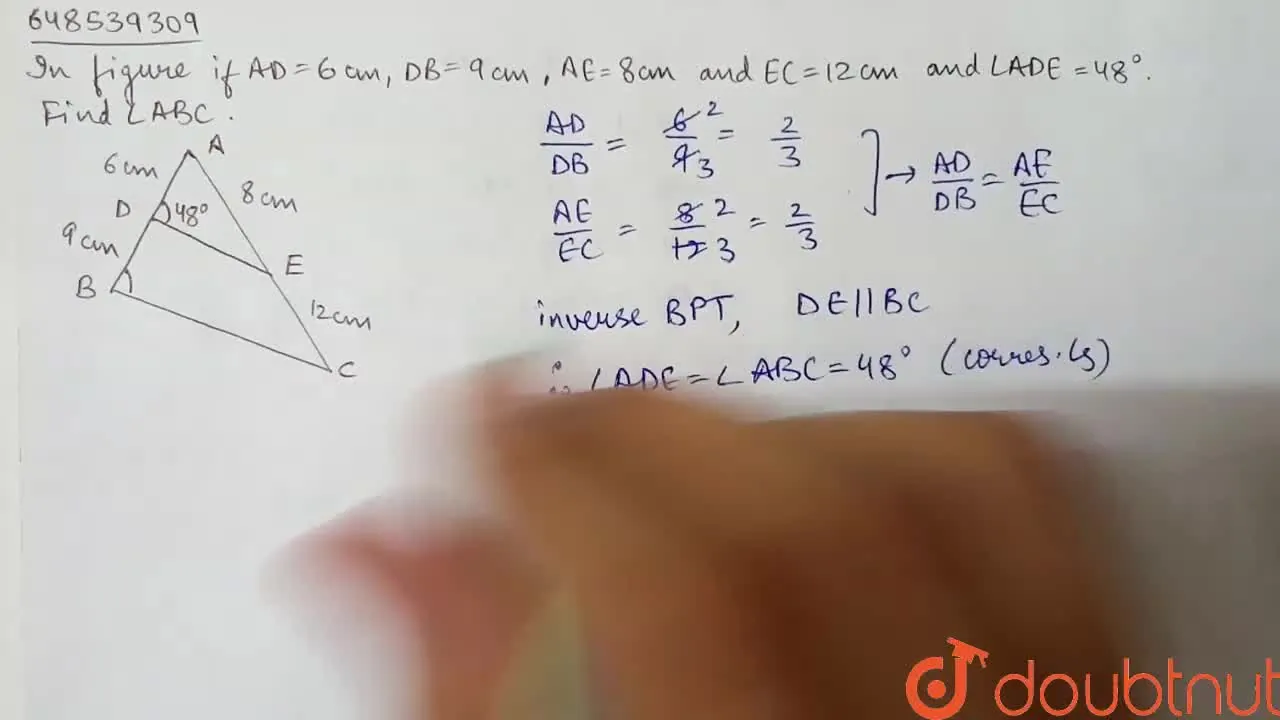 648539309
In figure if AD = 6 cm, DB = 9 cm, AE = 8 cm and EC = 12 cm and ∠ADE = 48°.
Find ∠ABC.
A
6 cm
8 cm
D
48°
9 cm
E
B
12 cm
C
AD/DB = 6/9 2/3 = 2/3
AE/EC = 8/12 2/3 = 2/3
] → AD/DB = AE/EC
inverse BPT, DE || BC
∴ ∠ADE = ∠ABC = 48° (corres. ∠s)
doubtnut